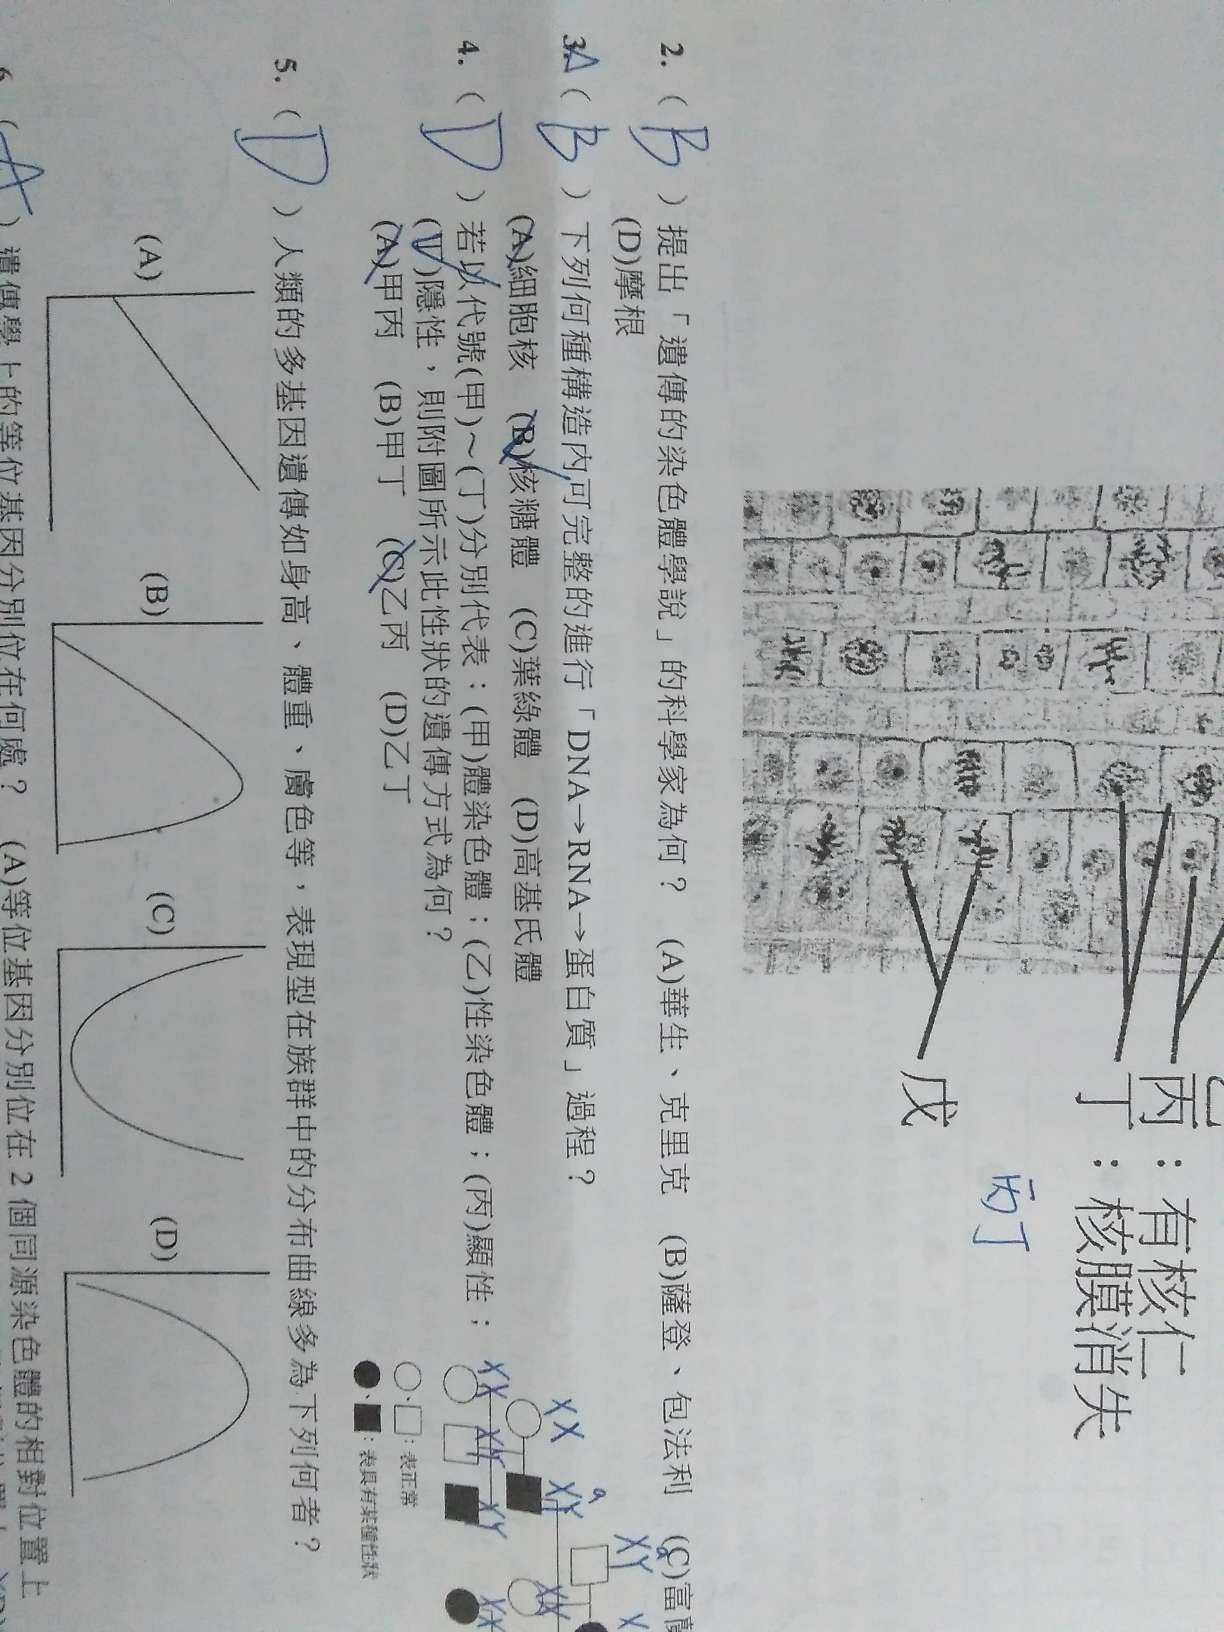 丙：有核仁
丁：核膜消失
丙丁
戊
2. (B) 提出「遺傳的染色體學說」的科學家為何？ (A)華生、克里克 (B)薩登、包法利 (C)富蘭
(D)摩根
3. A (B) 下列何種構造內,可完整的進行「DNA→RNA→蛋白質」過程？
(A)細胞核 (B)核糖體 (C)葉綠體 (D)高基氏體
4. (D) 若以代號(甲)～(丁)分別代表：(甲)體染色體；(乙)性染色體；(丙)顯性；
(丁)隱性，則附圖所示此性狀的遺傳方式為何？
(A)甲丙 (B)甲丁 (C)乙丙 (D)乙丁
XY a X
XX XY a XX
XX XY XY XX
○、□：表正常
●、■：表具有某種性狀
5. (D) 人類的多基因遺傳如身高、體重、膚色等，表現型在族群中的分布曲線多為下列何者？
(A) (B) (C) (D)
6. (A) 遺傳學上的等位基因分別位在何處？ (A)等位基因分別位在 2 個同源染色體的相對位置上